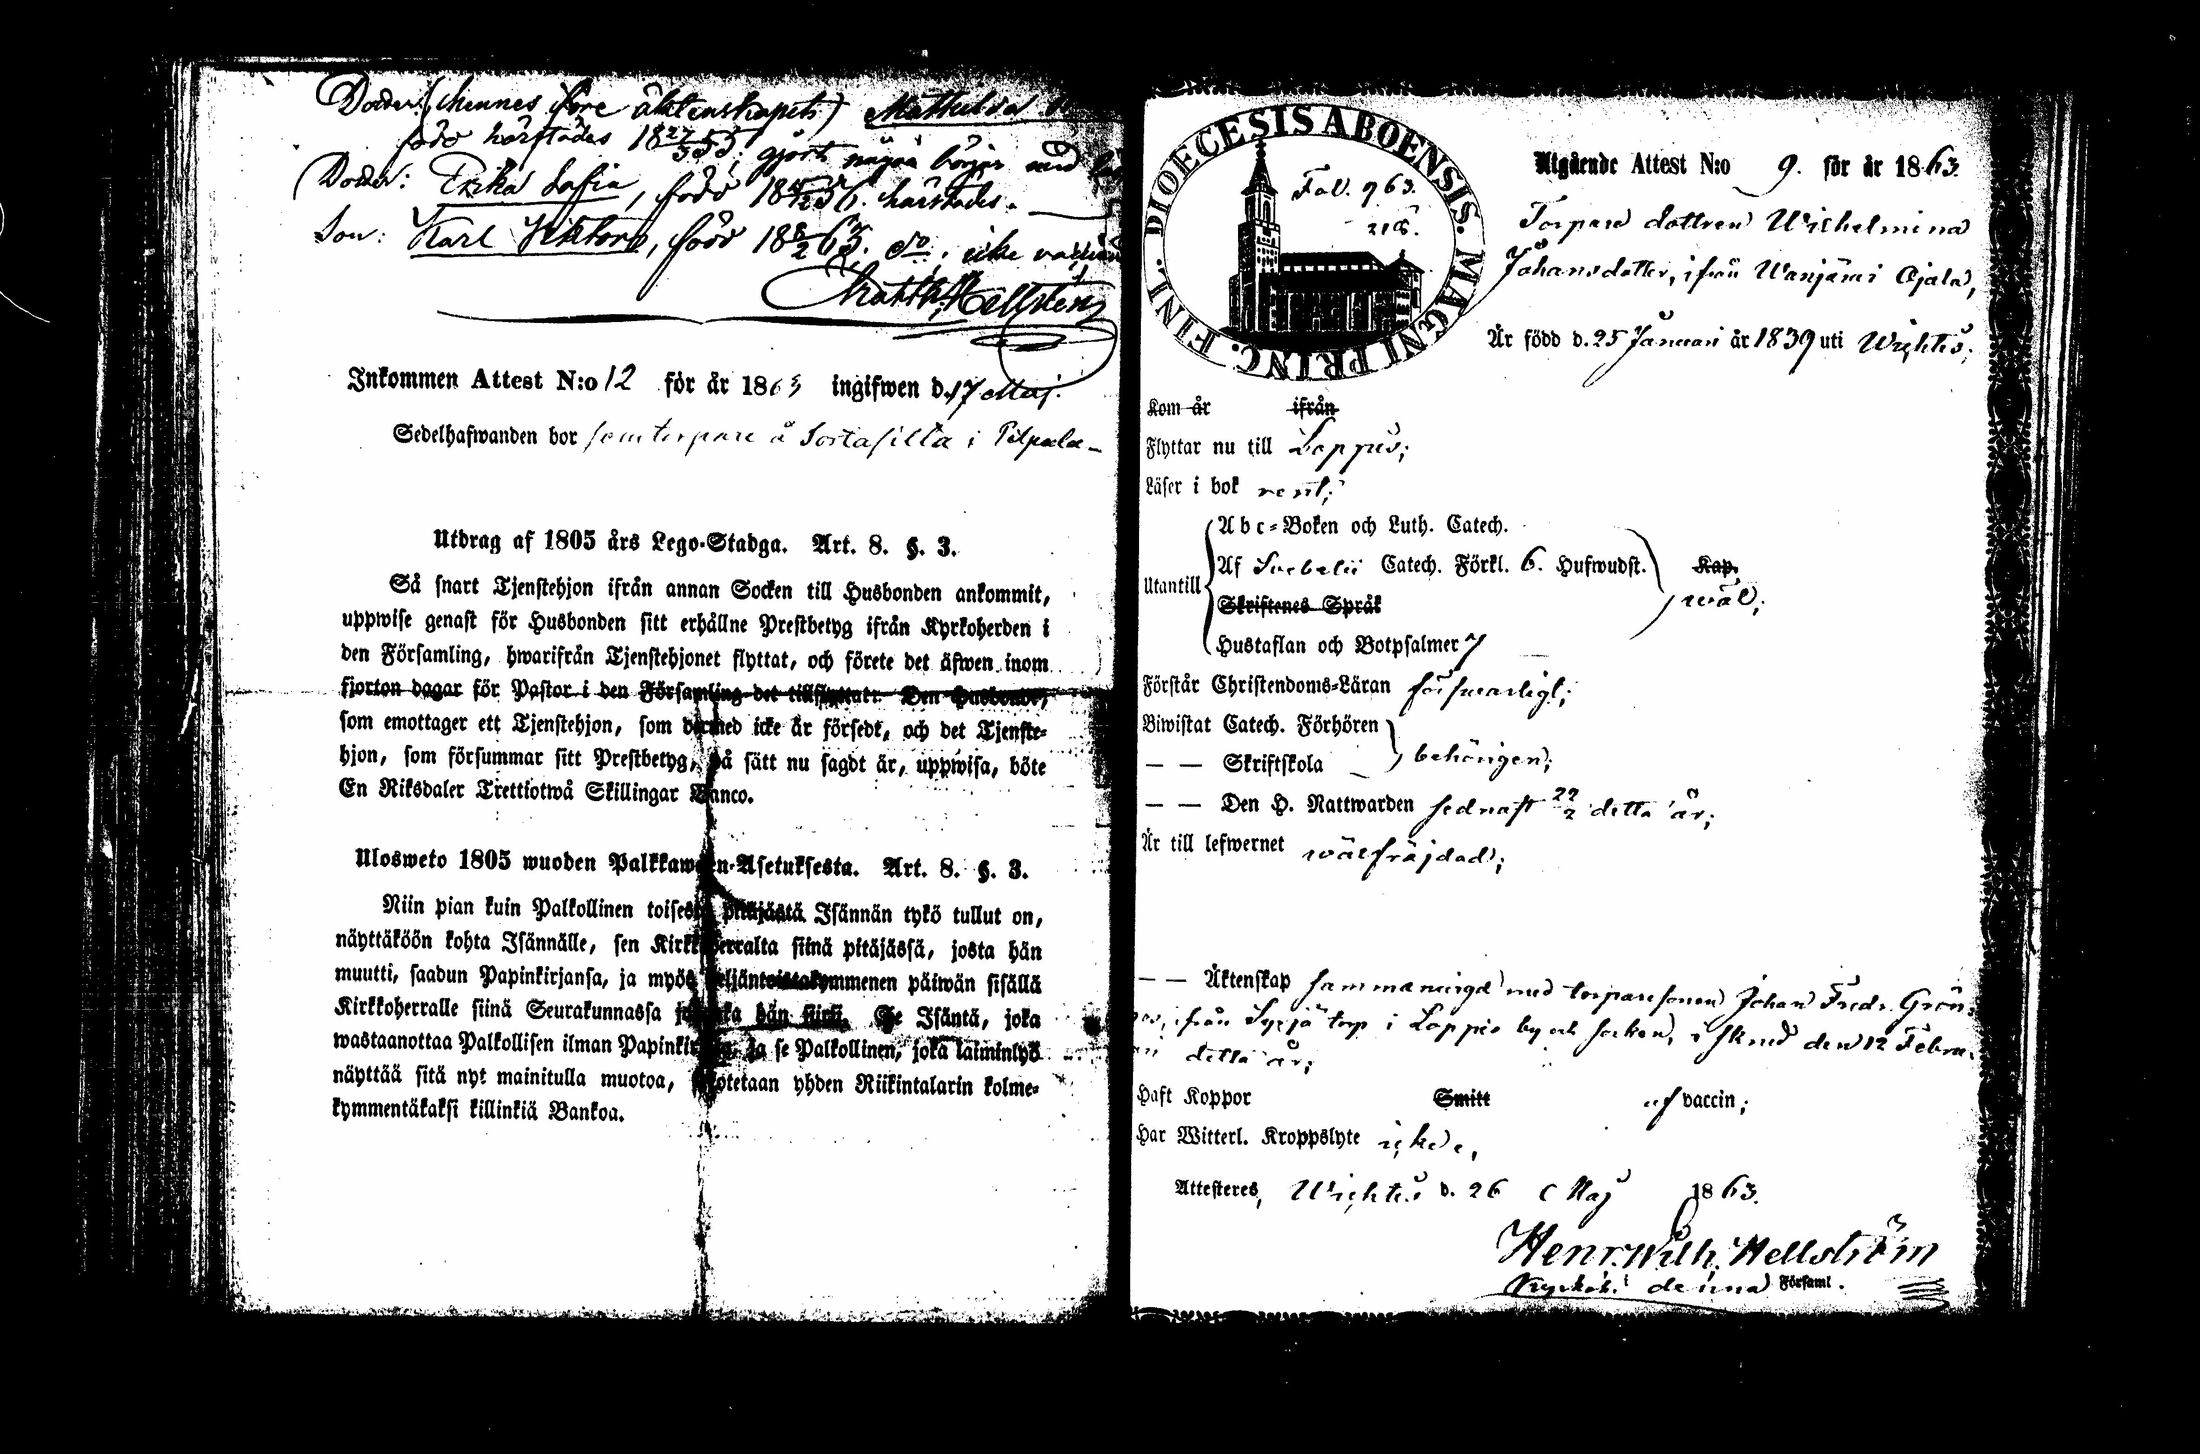 Dotter: (hennes före äktenskapet) Mathilda
född härstädes 18 27/3 53; gjort någon början med
Dotter: Erika Sofia, född 18 /12 56. härstädes.
Son: Karl Viktor, född 18 8/2 63. do. icke
Matth. Hellstén
Inkommen Attest N:o 12 för år 1863 ingifwen d. 17 Maj.
Sedelhafwanden bor som torpare å Sortasilta i Pilpala
Utdrag af 1805 års Lego-Stadga. Art. 8. §. 3.
Så snart Tjenstehjon ifrån annan Socken till Husbonden ankommit,
uppwise genast för Husbonden sitt erhållne Prestbetyg ifrån Kyrkoherden i
den Församling, hwarifrån Tjenstehjonet flyttat, och förete det äfwen inom
fjorton dagar för Pastor i den Församling det tillflyttatt. Den Husbonde,
som emottager ett Tjenstehjon, som dermed icke är försedt, och det Tjenste-
hjon, som försummar sitt Prestbetyg, på sätt nu sagdt är, uppwisa, böte
En Riksdaler Trettiotwå Skillingar Banco.
Ulosweto 1805 wuoden Palkkawäen-Asetuksesta. Art. 8. §. 3.
Niin pian kuin Palkollinen toisesta pitäjästä Isännän tykö tullut on,
näyttäköön kohta Isännälle, sen Kirkkoherralta siinä pitäjässä, josta hän
muutti, saadun Papinkirjansa, ja myös neljäntoistakymmenen päiwän sisällä
Kirkkoherralle siinä Seurakunnassa johonka hän siirsi. Se Isäntä, joka
wastaanottaa Palkollisen ilman Papinkirjata, ja se Palkollinen, joka laiminlyö
näyttää sitä nyt mainitulla muotoa, sakotetaan yhden Riikintalarin kolme-
kymmentäkaksi killinkiä Bankoa.
DIOECESIS ABOENSIS. MAGNI PRINC. FINL.
Fol. 963.
218.
Utgående Attest N:o 9. för år 1863.
Torpare dottren Wilhelmina
Johansdotter, ifrån Wanjärwi Ojala,
Är född d. 25 Januari år 1839 uti Wichtis;
Kom år ifrån
Flyttar nu till Loppis;
Läser i bok rent;
Utantill
Abc-Boken och Luth. Catech.
Af Svebelii Catech. Förkl. 6. Hufwudst. Kap.
Skriftenes Språk wäl;
Hustaflan och Botpsalmer 7
Förstår Christendoms-Läran försvarligt;
Biwistat Catech. Förhören
— — Skriftskola behörigen;
— — Den H. Nattwarden sednast 22/2 detta år;
Är till lefwernet wälfräjdad;
— — Äktenskap sammanwigd med torparesonen Johan Fredr. Grön-
ifrån Syrjä torp i Loppis by och socken, i Sknd den 12 Febru-
ari detta år;
Haft Koppor Smitt af vaccin;
Har Witterl. Kroppslyte icke,
Attesteres, Wichtis d. 26 Maj 1863.
Henr. Wilh. Hellström
Kyrkoh. i denna Församl.